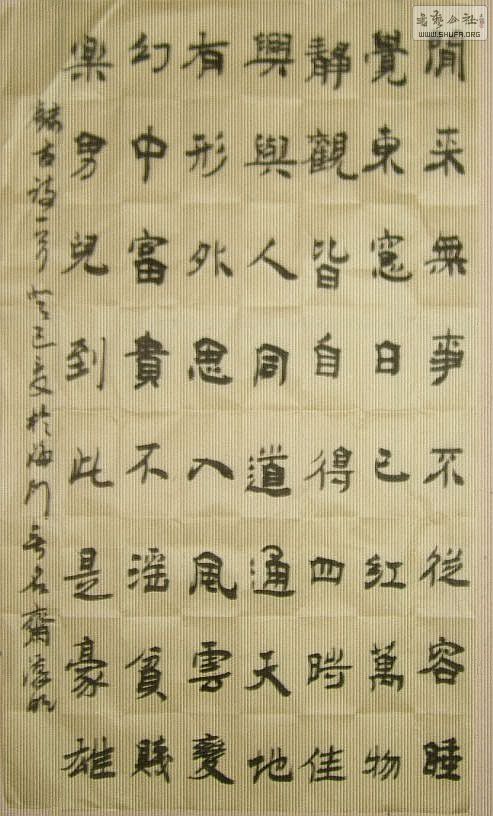 閒来無事不從容睡
覺東窓日已紅萬物
靜觀皆自得四時佳
興與人同道通天地
有形外思入風雲變
幻中富貴不滛貧賤
樂男兒到此是豪雄
錄古詩一首癸巳夏於海門無名齋
書藝公社
WWW.SHUFA.ORG